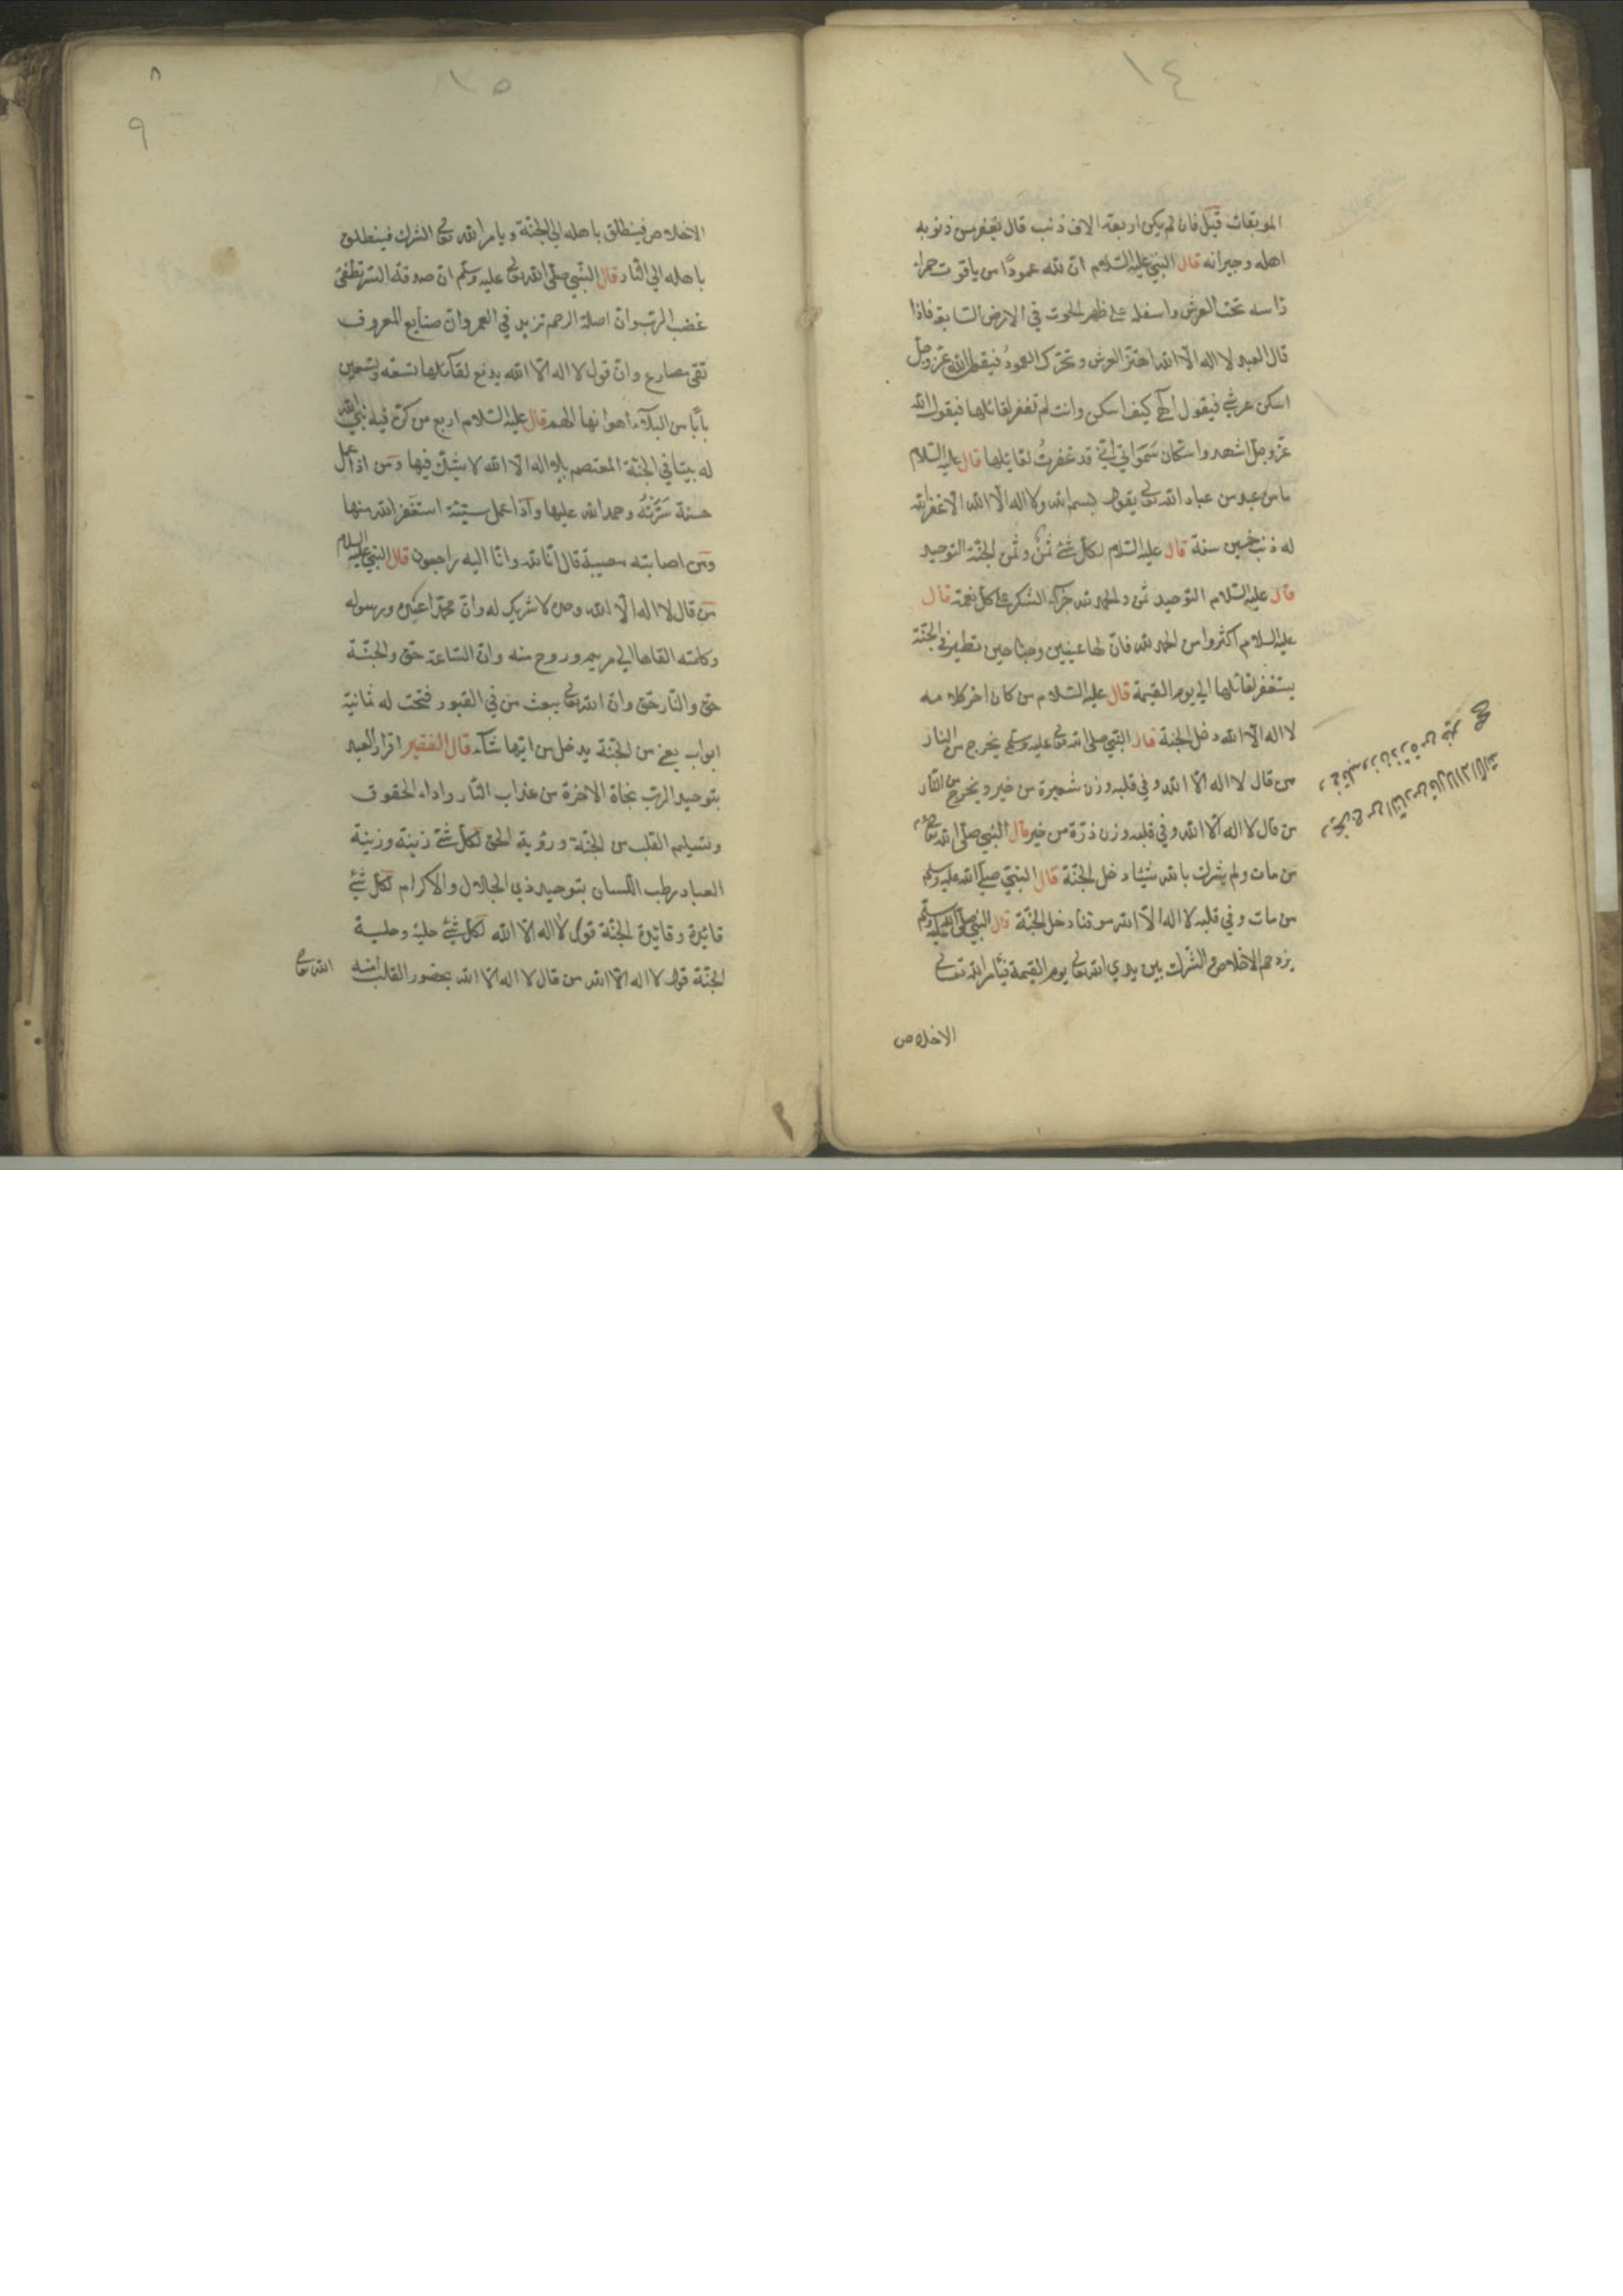 ١٤
الموبقات قيل فان لم يكن اربعة الاف ذنب قال يغفر من ذنوبه
اهله وجيرانه قال النبي عليه السلام ان لله عمودًا من ياقوت حمراء
راسه تحت العرش واسفله على ظهر الحوت في الارض السابعة فاذا
قال العبد لا اله الا الله اهتز العرش وتحرك العمود فيقول الله عز وجل
اسكن عرشي فيقول الهي كيف اسكن وانت لم تغفر لقائلها فيقول الله
عز وجل اشهدوا سكان سمواتي اني قد غفرت لقائلها قال عليه السلام
ما من عبد من عباد الله تعالى يقول بسم الله ولا اله الا الله الا غفر الله
له ذنب خمسين سنة قال عليه السلام لكل شئ ثمن وثمن الجنة التوحيد
قال عليه السلام التوحيد ثمن والحمد لله جزاء الشكر على كل نعمة قال
عليه السلام اكثروا من الحمد لله فان لها عينين وجناحين تطير في الجنة
يستغفر لقائلها الى يوم القيمة قال عليه السلام من كان اخر كلامه
لا اله الا الله دخل الجنة قال النبي صلى الله تعالى عليه وسلم يخرج من النار
من قال لا اله الا الله وفي قلبه وزن شعيرة من خير ويخرج من النار
من قال لا اله الا الله وفي قلبه وزن ذرة من خير قال النبي صلى الله تعالى
من مات ولم يشرك بالله شيئا دخل الجنة قال النبي صلى الله عليه وسلم
من مات وفي قلبه لا اله الا الله موقنا دخل الجنة قال النبي صلى الله عليه وسلم
يزدحم الاخلاص والشرك بين يدي الله تعالى يوم القيمة فيأمر الله تعالى
الاخلاص
ويخرج من النار من قال لا اله الا الله
وفي قلبه وزن ذرة من خير صح
١٥
٨
٩
الاخلاص فينطلق باهله الى الجنة ويامر الله تعالى الشرك فينطلق
باهله الى النار قال النبي صلى الله تعالى عليه وسلم ان صدقة السر تطفئ
غضب الرب وان اصلة الرحم تزيد في العمر وان صنايع المعروف
تقى مصارع وان قول لا اله الا الله يدفع لقائلها تسعة وتسعين
بابا من البلاء اهوانها الهم قال عليه السلام اربع من كن فيه بنى الله
له بيتا في الجنة المعتصم بلا اله الا الله لا يشك فيها ومن اذا عمل
حسنة سَرَّتْهُ وحمد الله عليها واذا عمل سيئة استغفر الله منها
ومن اصابته مصيبة قال انا لله وانا اليه راجعون قال النبي عليه السلام
من قال لا اله الا الله وحده لا شريك له وان محمدا عبده ورسوله
وكلمته القاها الى مريم وروح منه وان الساعة حق والجنة
حق والنار حق وان الله تعالى يبعث من في القبور فتحت له ثمانية
ابواب يعني من الجنة يدخل من ايها شاء قال الفقير اقرار العبد
بتوحيد الرب نجاة الاخرة من عذاب النار واداء الحقوق
وتسليم القلب من الجنة ورؤية الحق لكل شئ زينة وزينة
العباد رطب اللسان بتوحيد ذي الجلال والاكرام لكل شئ
قائدة وقائدة الجنة قول لا اله الا الله لكل شئ حلية وحلية
الجنة قول لا اله الا الله من قال لا اله الا الله بحضور القلب امنه الله تعالى